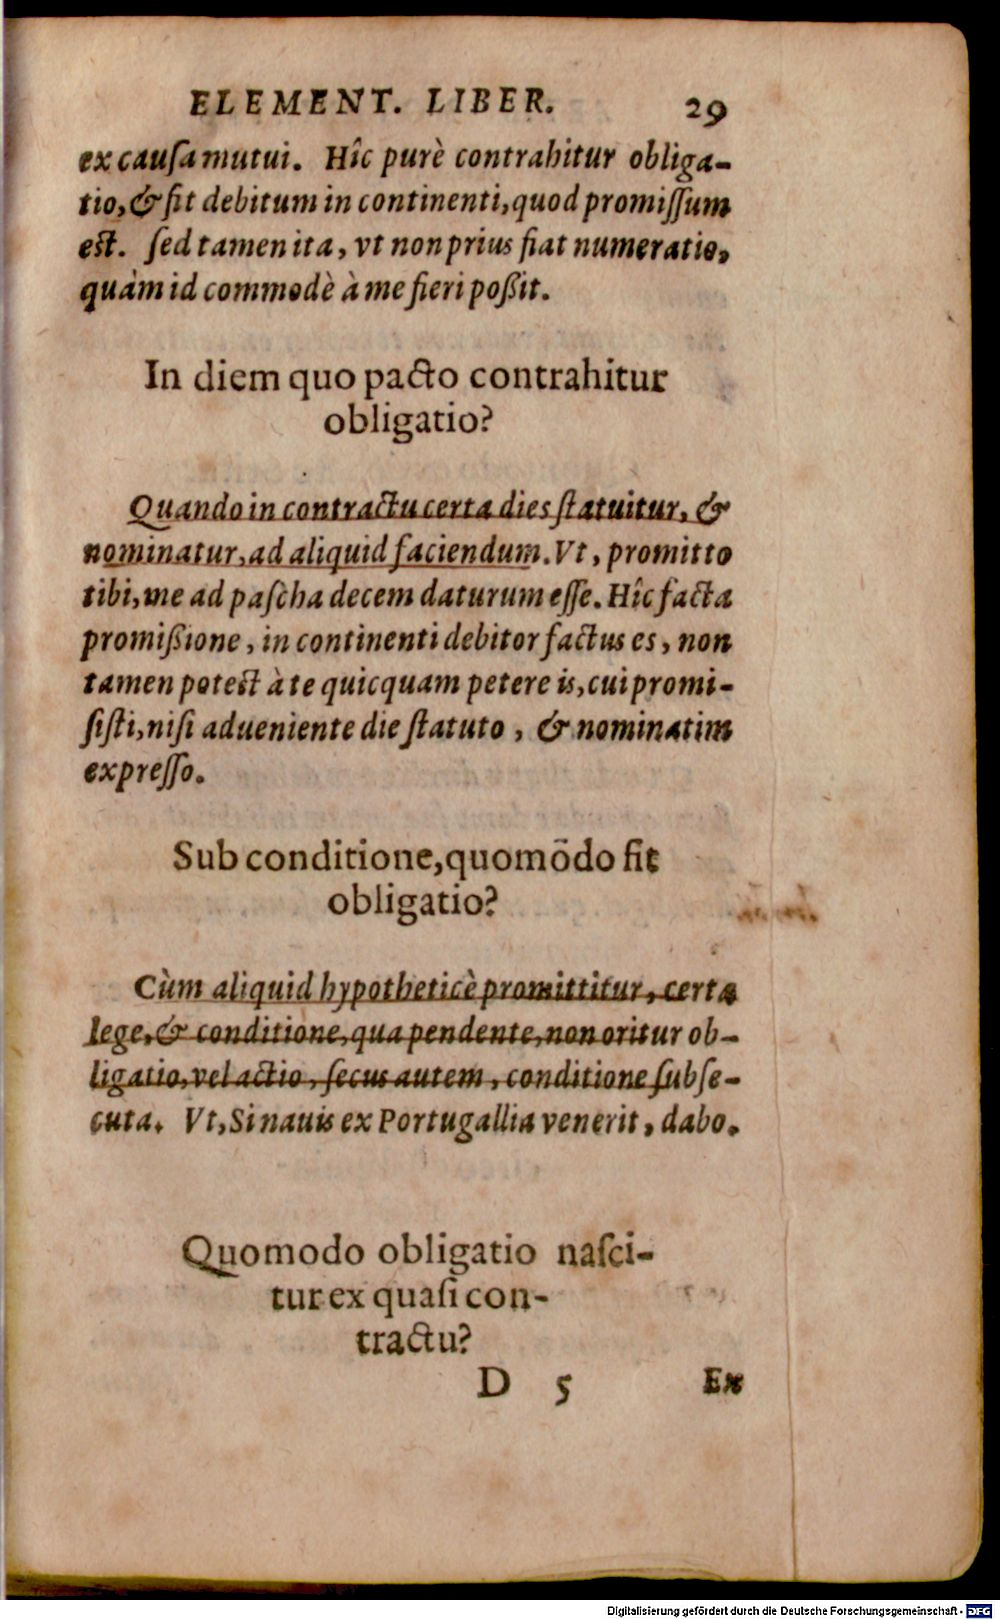 ELEMENT. LIBER. 29
ex cauſa mutui. Hîc purè contrahitur obliga-
tio, & fit debitum in continenti, quod promiſſum
est. ſed tamen ita, vt non prius fiat numeratio,
quàm id commodè à me fieri poßit.
In diem quo pacto contrahitur
obligatio?
Quando in contractu certa dies ſtatuitur, &
nominatur, ad aliquid faciendum. Vt, promitto
tibi, me ad paſcha decem daturum eſſe. Hîc facta
promißione, in continenti debitor factus es, non
tamen potest à te quicquam petere is, cui promi-
ſiſti, niſi adueniente die ſtatuto, & nominatim
expreſſo.
Sub conditione, quomōdo fit
obligatio?
Cùm aliquid hypotheticè promittitur, certa
lege, & conditione, qua pendente, non oritur ob-
ligatio, vel actio, ſecus autem, conditione ſubſe-
cuta. Vt, Si nauis ex Portugallia venerit, dabo.
Quomodo obligatio naſci-
tur ex quaſi con-
tractu?
D 5 Ex
Digitalisierung gefördert durch die Deutsche Forschungsgemeinschaft - DFG